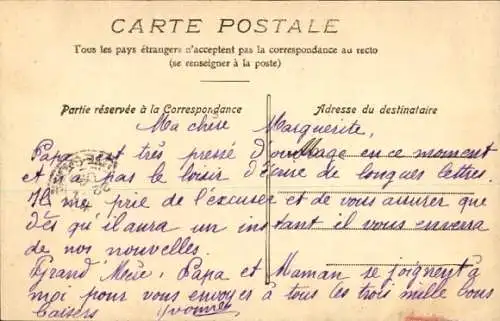 CARTE POSTALE
Tous les pays étrangers n'acceptent pas la correspondance au recto
(se renseigner à la poste)
Partie réservée à la Correspondance
Adresse du destinataire
Ma chère Marguerite,
Papa est très pressé d'ouvrage en ce moment
et n'a pas le loisir d'écrire de longues lettres.
Il me prie de l'excuser et de vous assurer que
dès qu'il aura un instant il vous enverra
de nos nouvelles.
Grand'Mère, Papa et Maman se joignent à
moi pour vous envoyer à tous les trois mille bons
baisers Yvonne